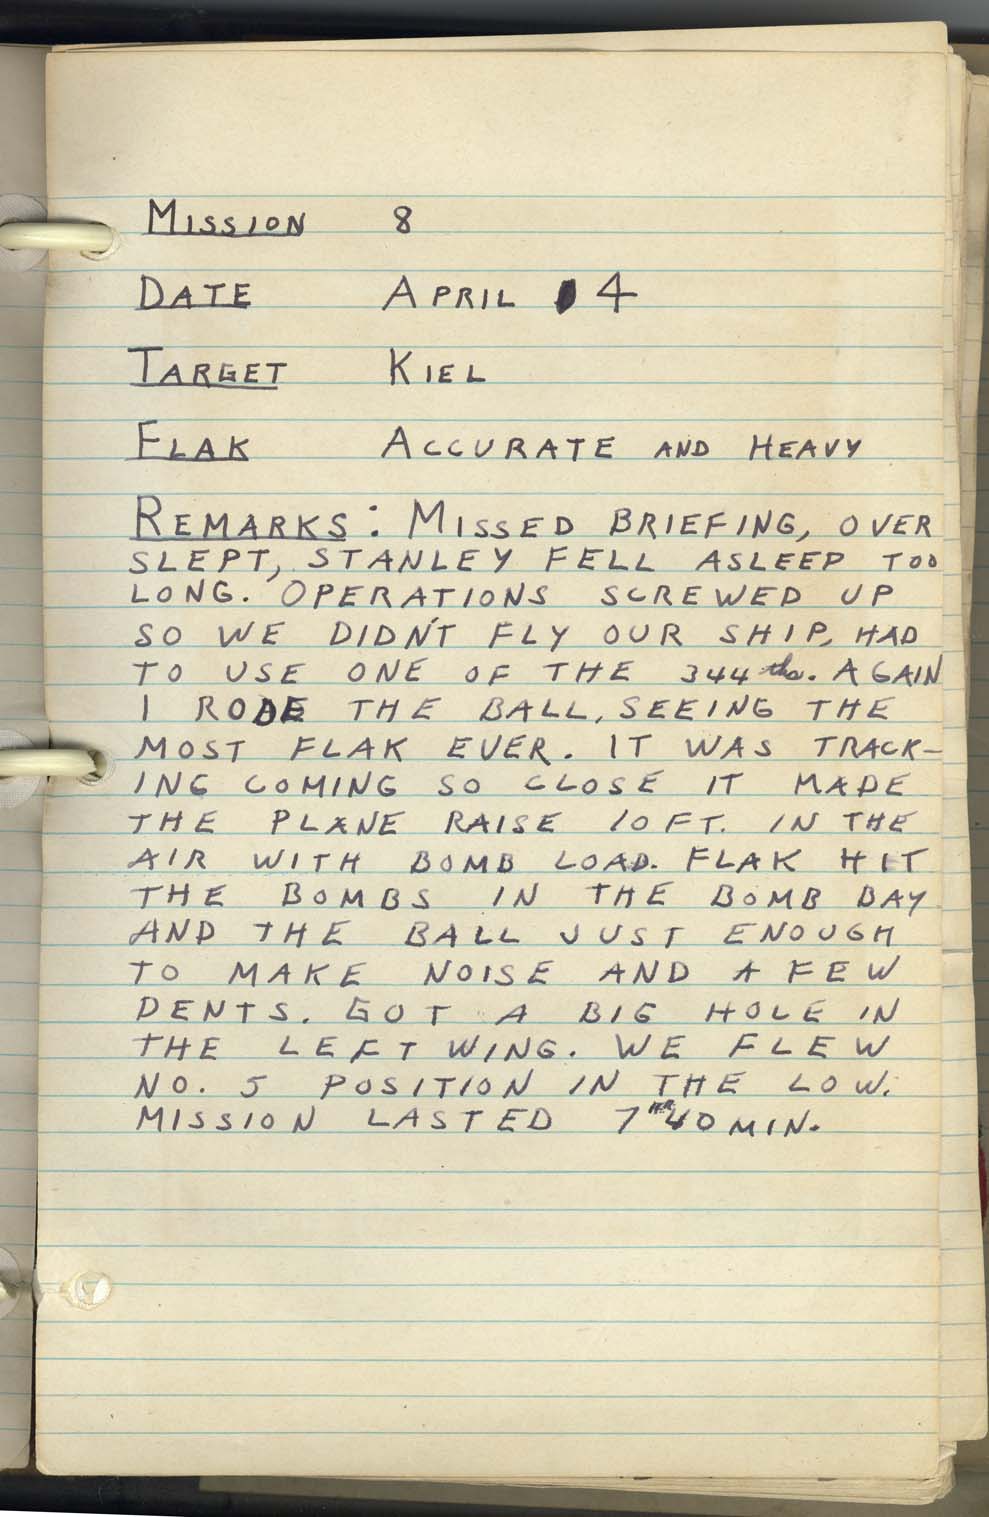 MISSION 8
DATE APRIL 4
TARGET KIEL
FLAK ACCURATE AND HEAVY
REMARKS: MISSED BRIEFING, OVER
SLEPT, STANLEY FELL ASLEEP TOO
LONG. OPERATIONS SCREWED UP
SO WE DIDN'T FLY OUR SHIP, HAD
TO USE ONE OF THE 344ths. AGAIN
I RODE THE BALL, SEEING THE
MOST FLAK EVER. IT WAS TRACK-
ING COMING SO CLOSE IT MADE
THE PLANE RAISE 10 FT. IN THE
AIR WITH BOMB LOAD. FLAK HIT
THE BOMBS IN THE BOMB BAY
AND THE BALL JUST ENOUGH
TO MAKE NOISE AND A FEW
DENTS. GOT A BIG HOLE IN
THE LEFT WING. WE FLEW
NO. 5 POSITION IN THE LOW.
MISSION LASTED 7 HR 40 MIN.